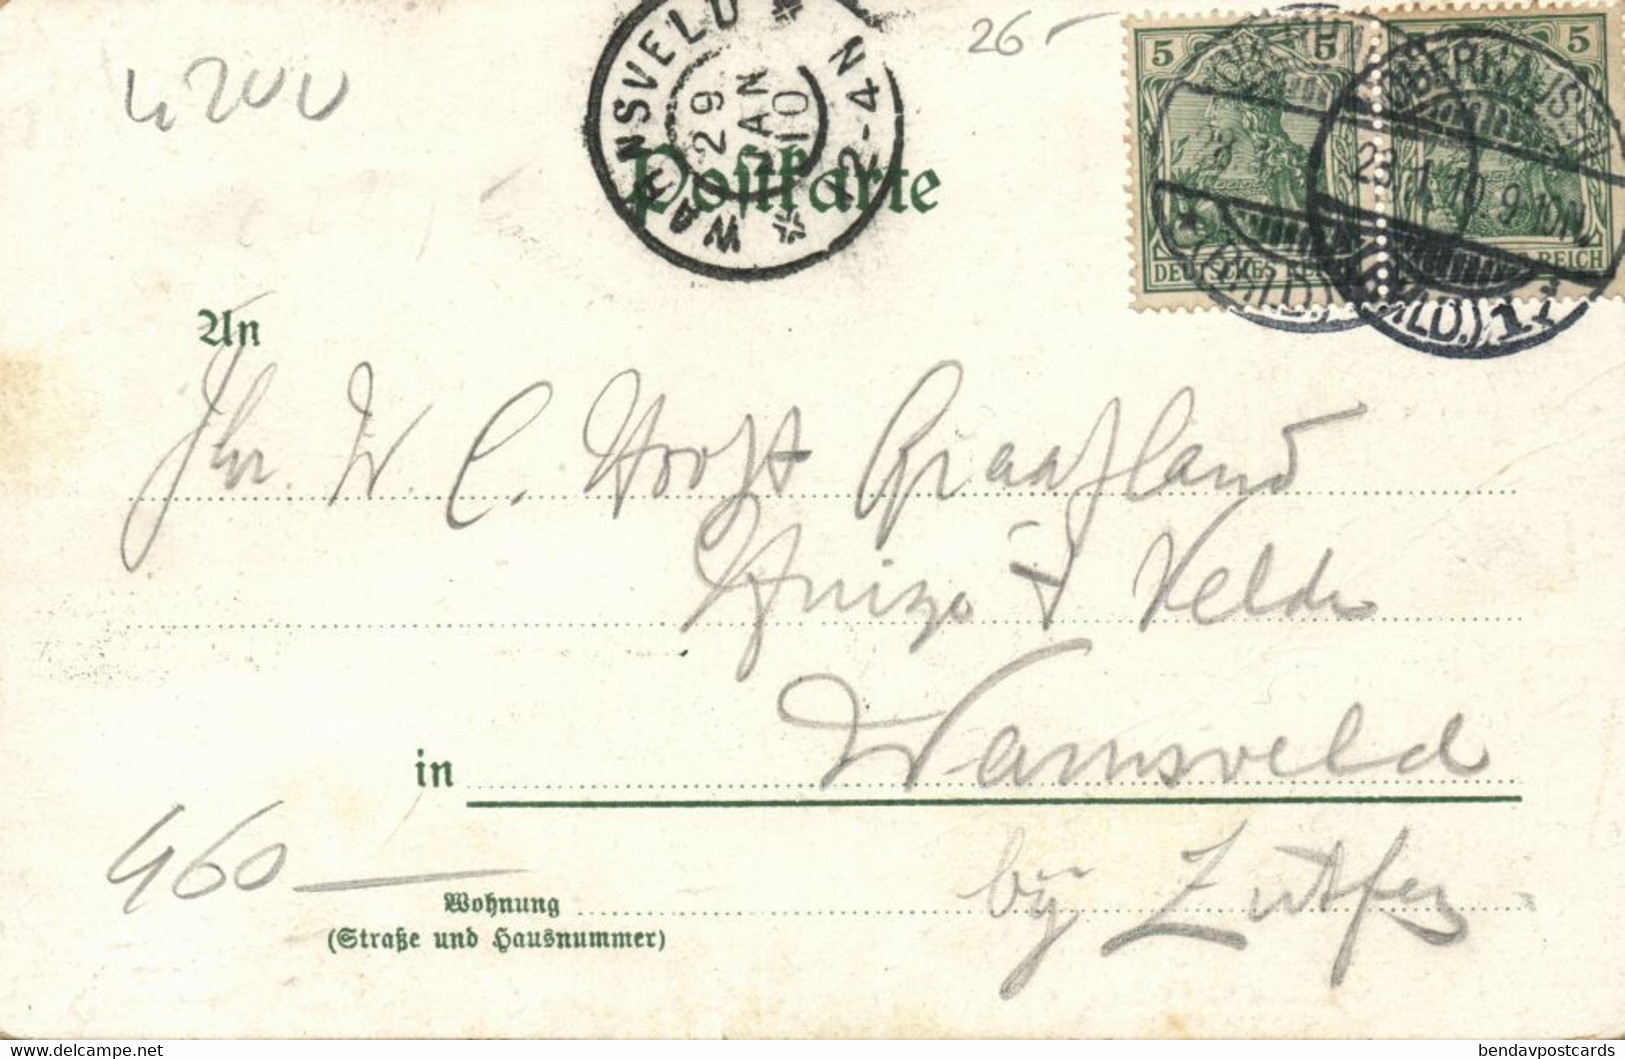 4200
26-
WARNSVELD
29 JAN 10
12-4N
Postkarte
5 5 5
DEUTSCHES REICH
REICH
OBERHAUSEN
28.1.10.9-10N.
(RHLD.) 1
An
Jhr. W. C. Hooft Graafland
Huize 't Velde
in Warnsveld
by Zutfen
460
Wohnung
(Straße und Hausnummer)
delcampe.net
bendavpostcards